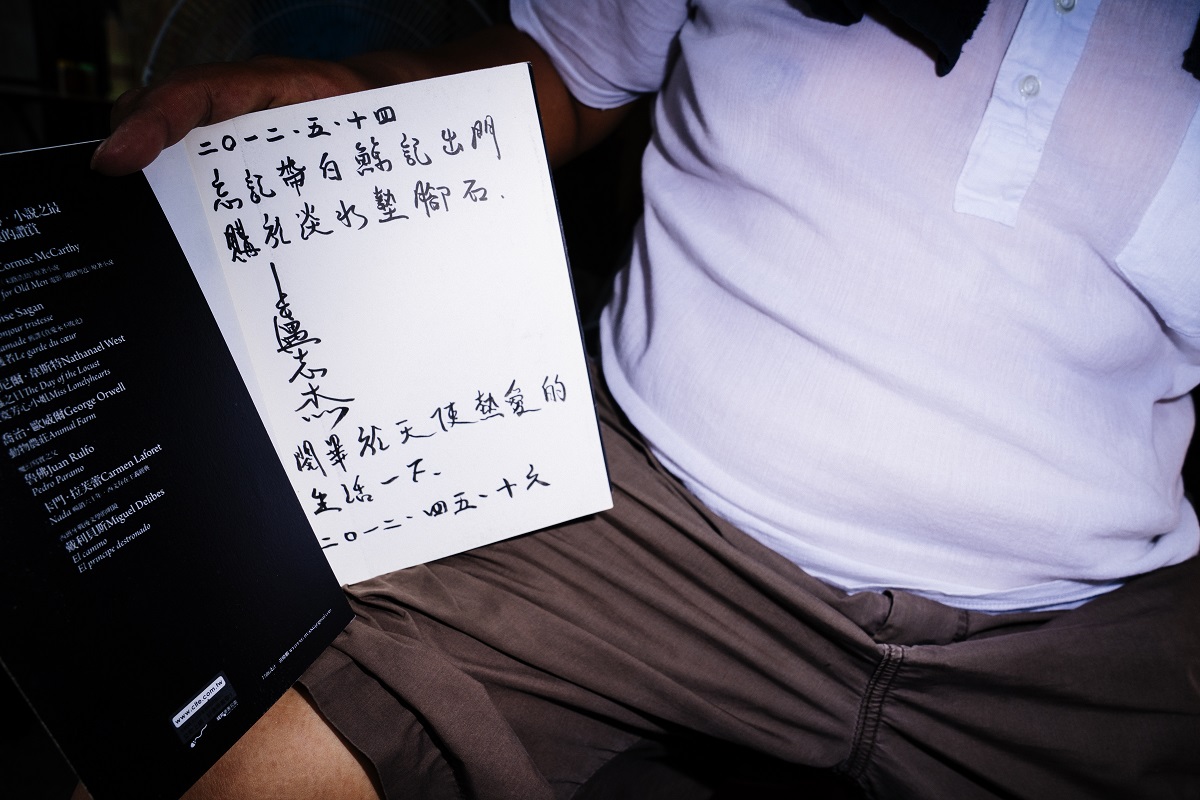 小說之最
的讚賞
Cormac McCarthy
for Old Men
ise Sagan
onjour tristesse
Le garde du cœur
尼爾·韋斯特Nathanael West
之日The Day of the Locust
芳心小姐Miss Lonelyhearts
喬治·歐威爾George Orwell
動物農莊Animal Farm
魯佛Juan Rulfo
Pedro Paramo
卡門·拉芙蕾Carmen Laforet
Nada
戴利貝斯Miguel Delibes
El camino
El príncipe destronado
www.cite.com.tw
二〇一二·五·十四
忘記帶白鯨記出門
購於淡水墊腳石.
盧志杰
閱畢於天使熱愛的
生活一下、
二〇一二、四五、十六